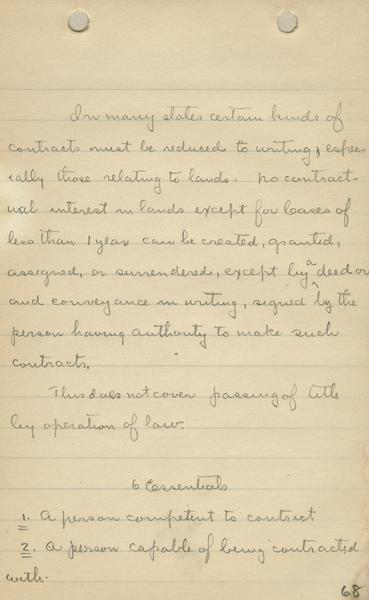 In many states certain kinds of
contracts must be reduced to writing, espec-
ially those relating to lands. No contract-
ual interest in lands except for leases of
less than 1 year can be created, granted,
assigned, or surrendered, except by a deed or
and conveyance in writing, signed by the
person having authority to make such
contracts.
This does not cover passing of title
by operation of law.
6 Essentials
1. A person competent to contract
2. A person capable of being contracted
with.
68